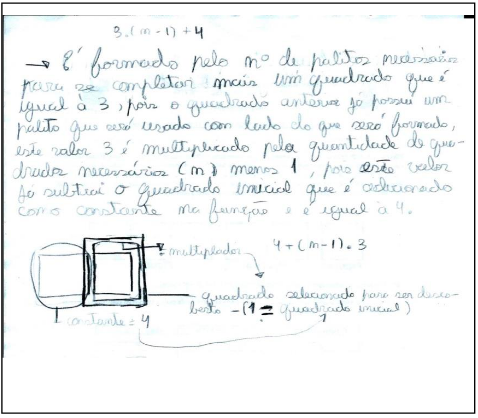 3.(n-1)+4
→ É formado pelo nº de palitos necessários
para se completar mais um quadrado que é
igual à 3, pois o quadrado anterior já possui um
palito que será usado com lado do que será formado,
este valor 3 é multiplicado pela quantidade de qua-
drados necessários (n) menos 1, pois este valor
já subtrai o quadrado inicial que é adicionado
como constante na função e é igual a 4.
= multiplador 4+(n-1).3
quadrado selecionado para ser desco-
berto -(1 = quadrado inicial)
constante = 4
1